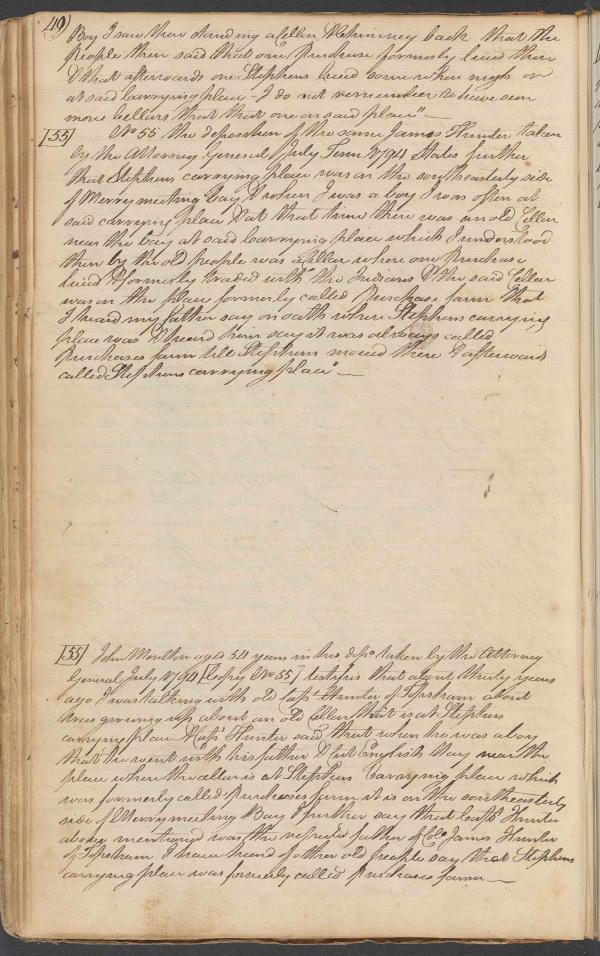 49
Boy I saw there standing a Cellar & Chimney back that the
People then said that one Purchase formerly lived there
& that afterwards one Stephens lived some where nigh or
at said carrying place - I do not remember to have seen
more Cellars that that one on said place" —
[55] No 55 the deposition of the same James Hunter taken
by the Attorney General July Term 1794 States further
that Stephens carrying place was on the southeasterly side
of Merrymeeting Bay & when I was a boy I was often at
said carrying place & at that time there was an old Cellar
near the bay at said carrying place which I understood
then by the old people was a Cellar where one Purchase
lived & formerly traded with the Indians & the said Cellar
was on the place formerly called Purchase farm that
I heard my father say on oath where Stephens carrying
place was & heard him say it was always called
Purchases farm till Stephens moved there & afterward
called Stephens carrying place" —
[55] John Moulton aged 54 years in his depo taken by the Attorney
General July 1794 [Copy No 55] testifies that about thirty years
ago I was talking with old Capt Hunter of Topsham about
trees growing up about an old Cellar that is at Stephens
carrying place & Capt Hunter said that when he was a boy
that he went with his father & Cut English Hay near the
place where the cellar is at Stephens Carrying place which
was formerly called Purchases farm it is on the southeasterly
side of Merrymeeting Bay I further say that Capt Hunter
above mentioned was the reputed father of Colo James Hunter
of Topsham I have heard of other old people say that Stephens
carrying place was formerly called Purchases farm —